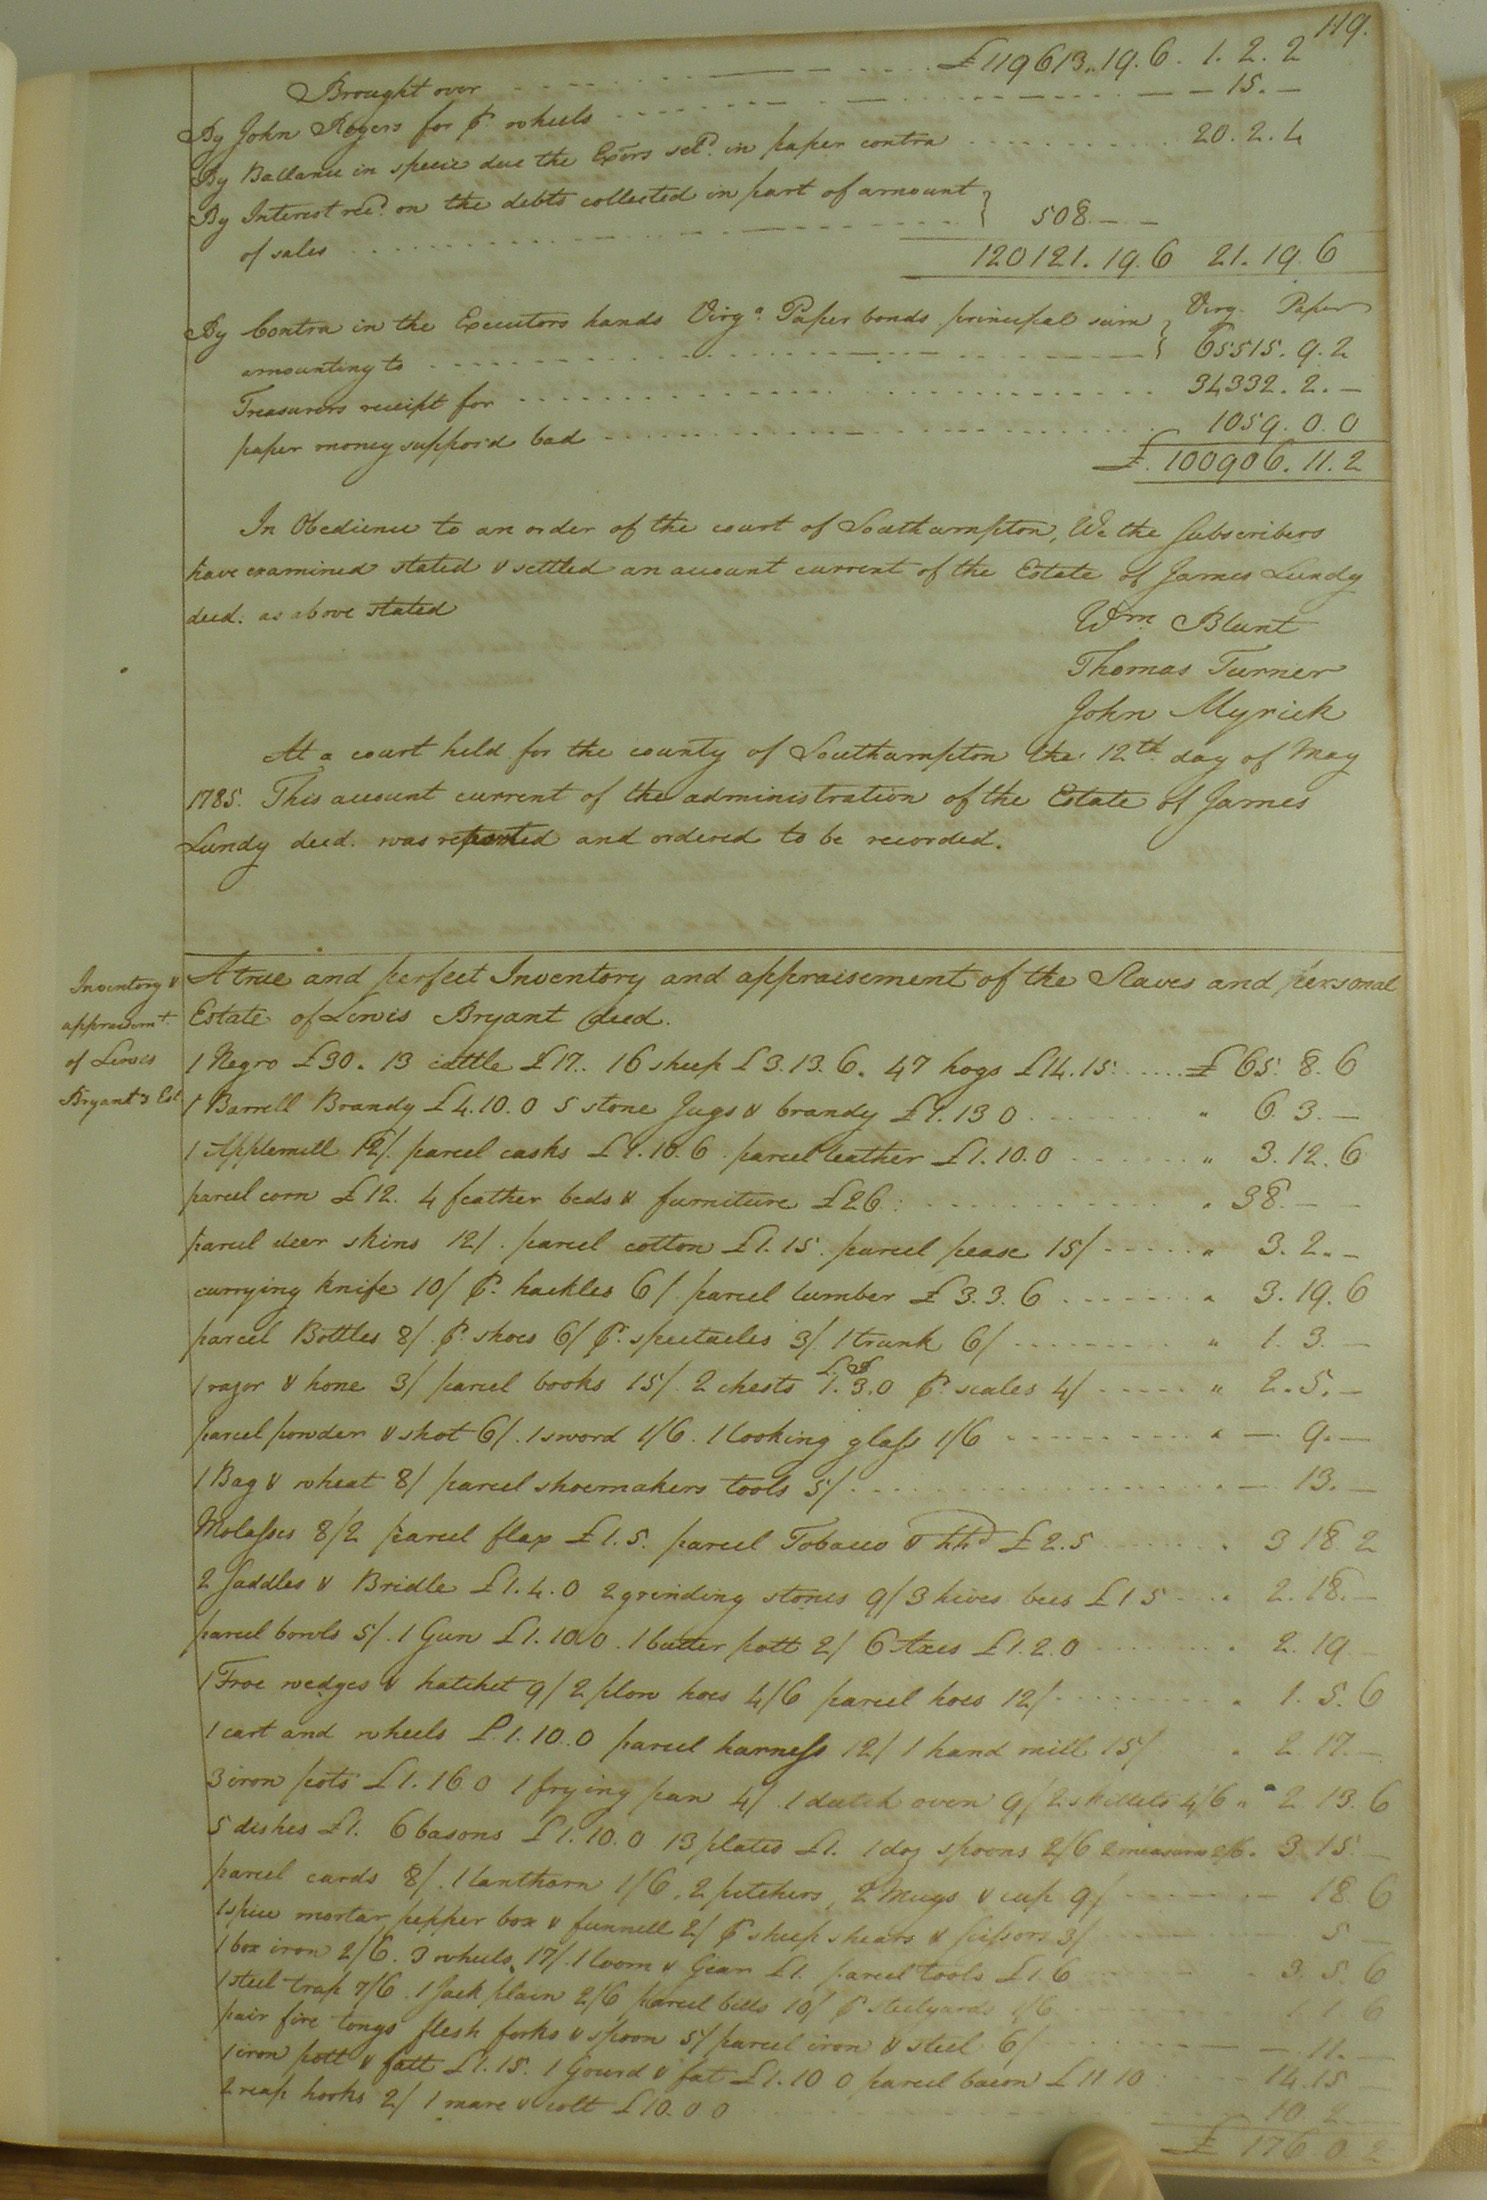 119.
Brought over £119613..19.6. 1.2.2
By John Rogers for pr. wheels 15.—
By Ballance in specie due the Exors setd. in paper contra 20.2.4
By Interest recd. on the debts collected in part of amount
of sales 508.—
120121.19.6 21.19.6
By Contra in the Executors hands Virga. Paper bonds principal sum Virg. Paper
amounting to 65515.9.2
Treasurers receipt for 34332.2.—
paper money suppos'd bad 1059.0.0
£.100906.11.2
In Obedience to an order of the court of Southampton, We the Subscribers
have examined stated & settled an account current of the Estate of James Lundy
decd. as above stated
Wm. Blunt
Thomas Turner
John Myrick
At a court held for the county of Southampton the 12th. day of May
1785. This account current of the administration of the Estate of James
Lundy decd. was reported and ordered to be recorded.
Inventory &
appraisemt.
of Lewis
Bryant's Est
A true and perfect Inventory and appraisement of the Slaves and personal
Estate of Lewis Bryant decd.
1 Negro £30. 13 cattle £17.. 16 sheep £3.13.6. 47 hogs £14.15. £65.8.6
1 Barrell Brandy £4.10.0 5 stone Jugs & brandy £1.13 0 " 6.3.—
1 Applemill 12/. parcel casks £1.10.6. parcel leather £1.10.0 " 3.12.6
parcel corn £12. 4 feather beds & furniture £26. " 38.—
parcel deer skins 12/. parcel cotton £1.15. parcel pease 15/ " 3.2.—
currying knife 10/ pr. hackles 6/. parcel lumber £3.3.6 " 3.19.6
parcel Bottles 8/. pr. shoes 6/ pr. spectacles 3/. 1 trunk 6/ " 1.3.—
1 razor & hone 3/ parcel books 15/. 2 chests £1.3.0 pr. scales 4/ " 2.5.—
parcel powder & shot 6/. 1 sword 1/6. 1 looking glass 1/6 " — 9.—
1 Bag & wheat 8/ parcel shoemakers tools 5/ — 13.—
Molasses 8/2 parcel flax £1.5. parcel Tobacco & hhd £2.5 " 3 18.2
2 Saddles & Bridle £1.4.0 2 grinding stones 9/ 3 hives bees £1 5 " 2.18.—
parcel bowls 5/. 1 Gun £1.10.0. 1 butter pott 2/ 6 Axes £1.2.0 " 2.19.—
1 Froe wedges & hatchet 9/ 2 plow hoes 4/6 parcel hoes 12/ " 1.5.6
1 cart and wheels £1.10.0 parcel harness 12/ 1 hand mill 15/ " 2.17.—
3 iron pots £1.16 0 1 frying pan 4/. 1 dutch oven 9/ 2 skillets 4/6 " 2.13.6
5 dishes £1. 6 basons £1.10.0 13 plates £1. 1 doz spoons 2/6 2 measures 2/6. 3.15.—
parcel cards 8/. 1 lanthorn 1/6. 2 pitchers, 2 Mugs & cup 9/ — 18.6
1 spice mortar, pepper box & funnell 2/ pr sheep shears & scissors 3/ 5 —
1 box iron 2/6. 3 wheels 17/. 1 loom & Gear £1. parcel tools £1 6 3.5.6
1 steel trap 7/6. 1 Jack plain 2/6 parcel bells 10/ pr steelyards 1/6 1 1 6
pair fire tongs flesh forks & spoon 5/ parcel iron & steel 6/ — 11.—
1 iron pott & fatt £1.15. 1 Gourd & fat £1.10 0 parcel bacon £11 10 14.15 —
2 reap hooks 2/ 1 mare & colt £10.0 0 10.2 —
£ 176.0.2